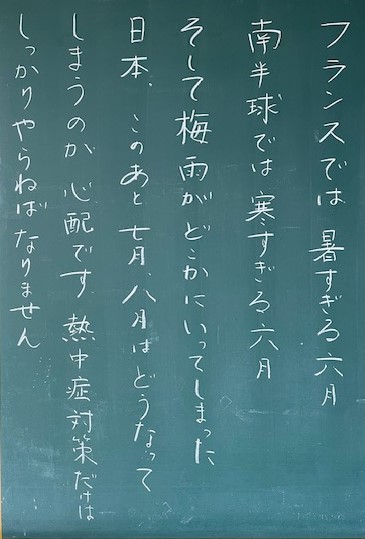 フランスでは 暑すぎる六月
南半球では 寒すぎる六月
そして梅雨がどこかにいってしまった
日本、このあと七月、八月はどうなって
しまうのか 心配です 熱中症対策だけは
しっかりやらねばなりません